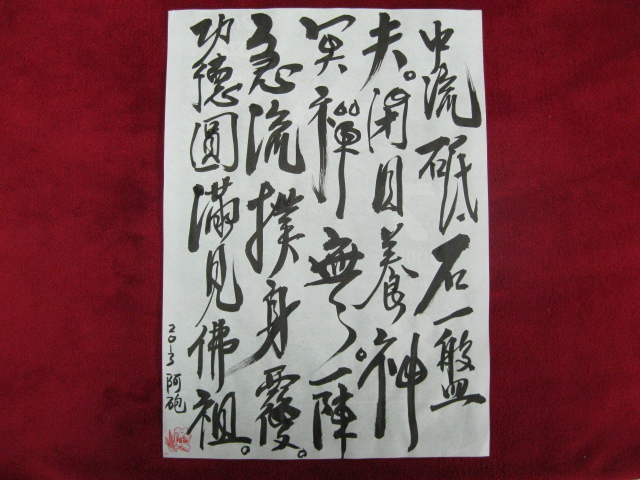 中流砥石一盤
夫。闭目養神
冥禪無。一陣
急流撲身覆。
功德圓滿見佛祖。
2013 阿砲